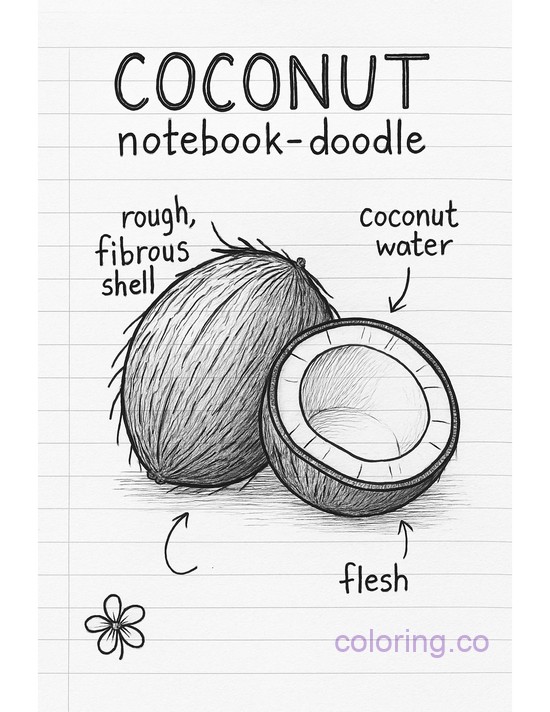 COCONUT
notebook-doodle
rough,
fibrous
shell
coconut
water
flesh
coloring.co